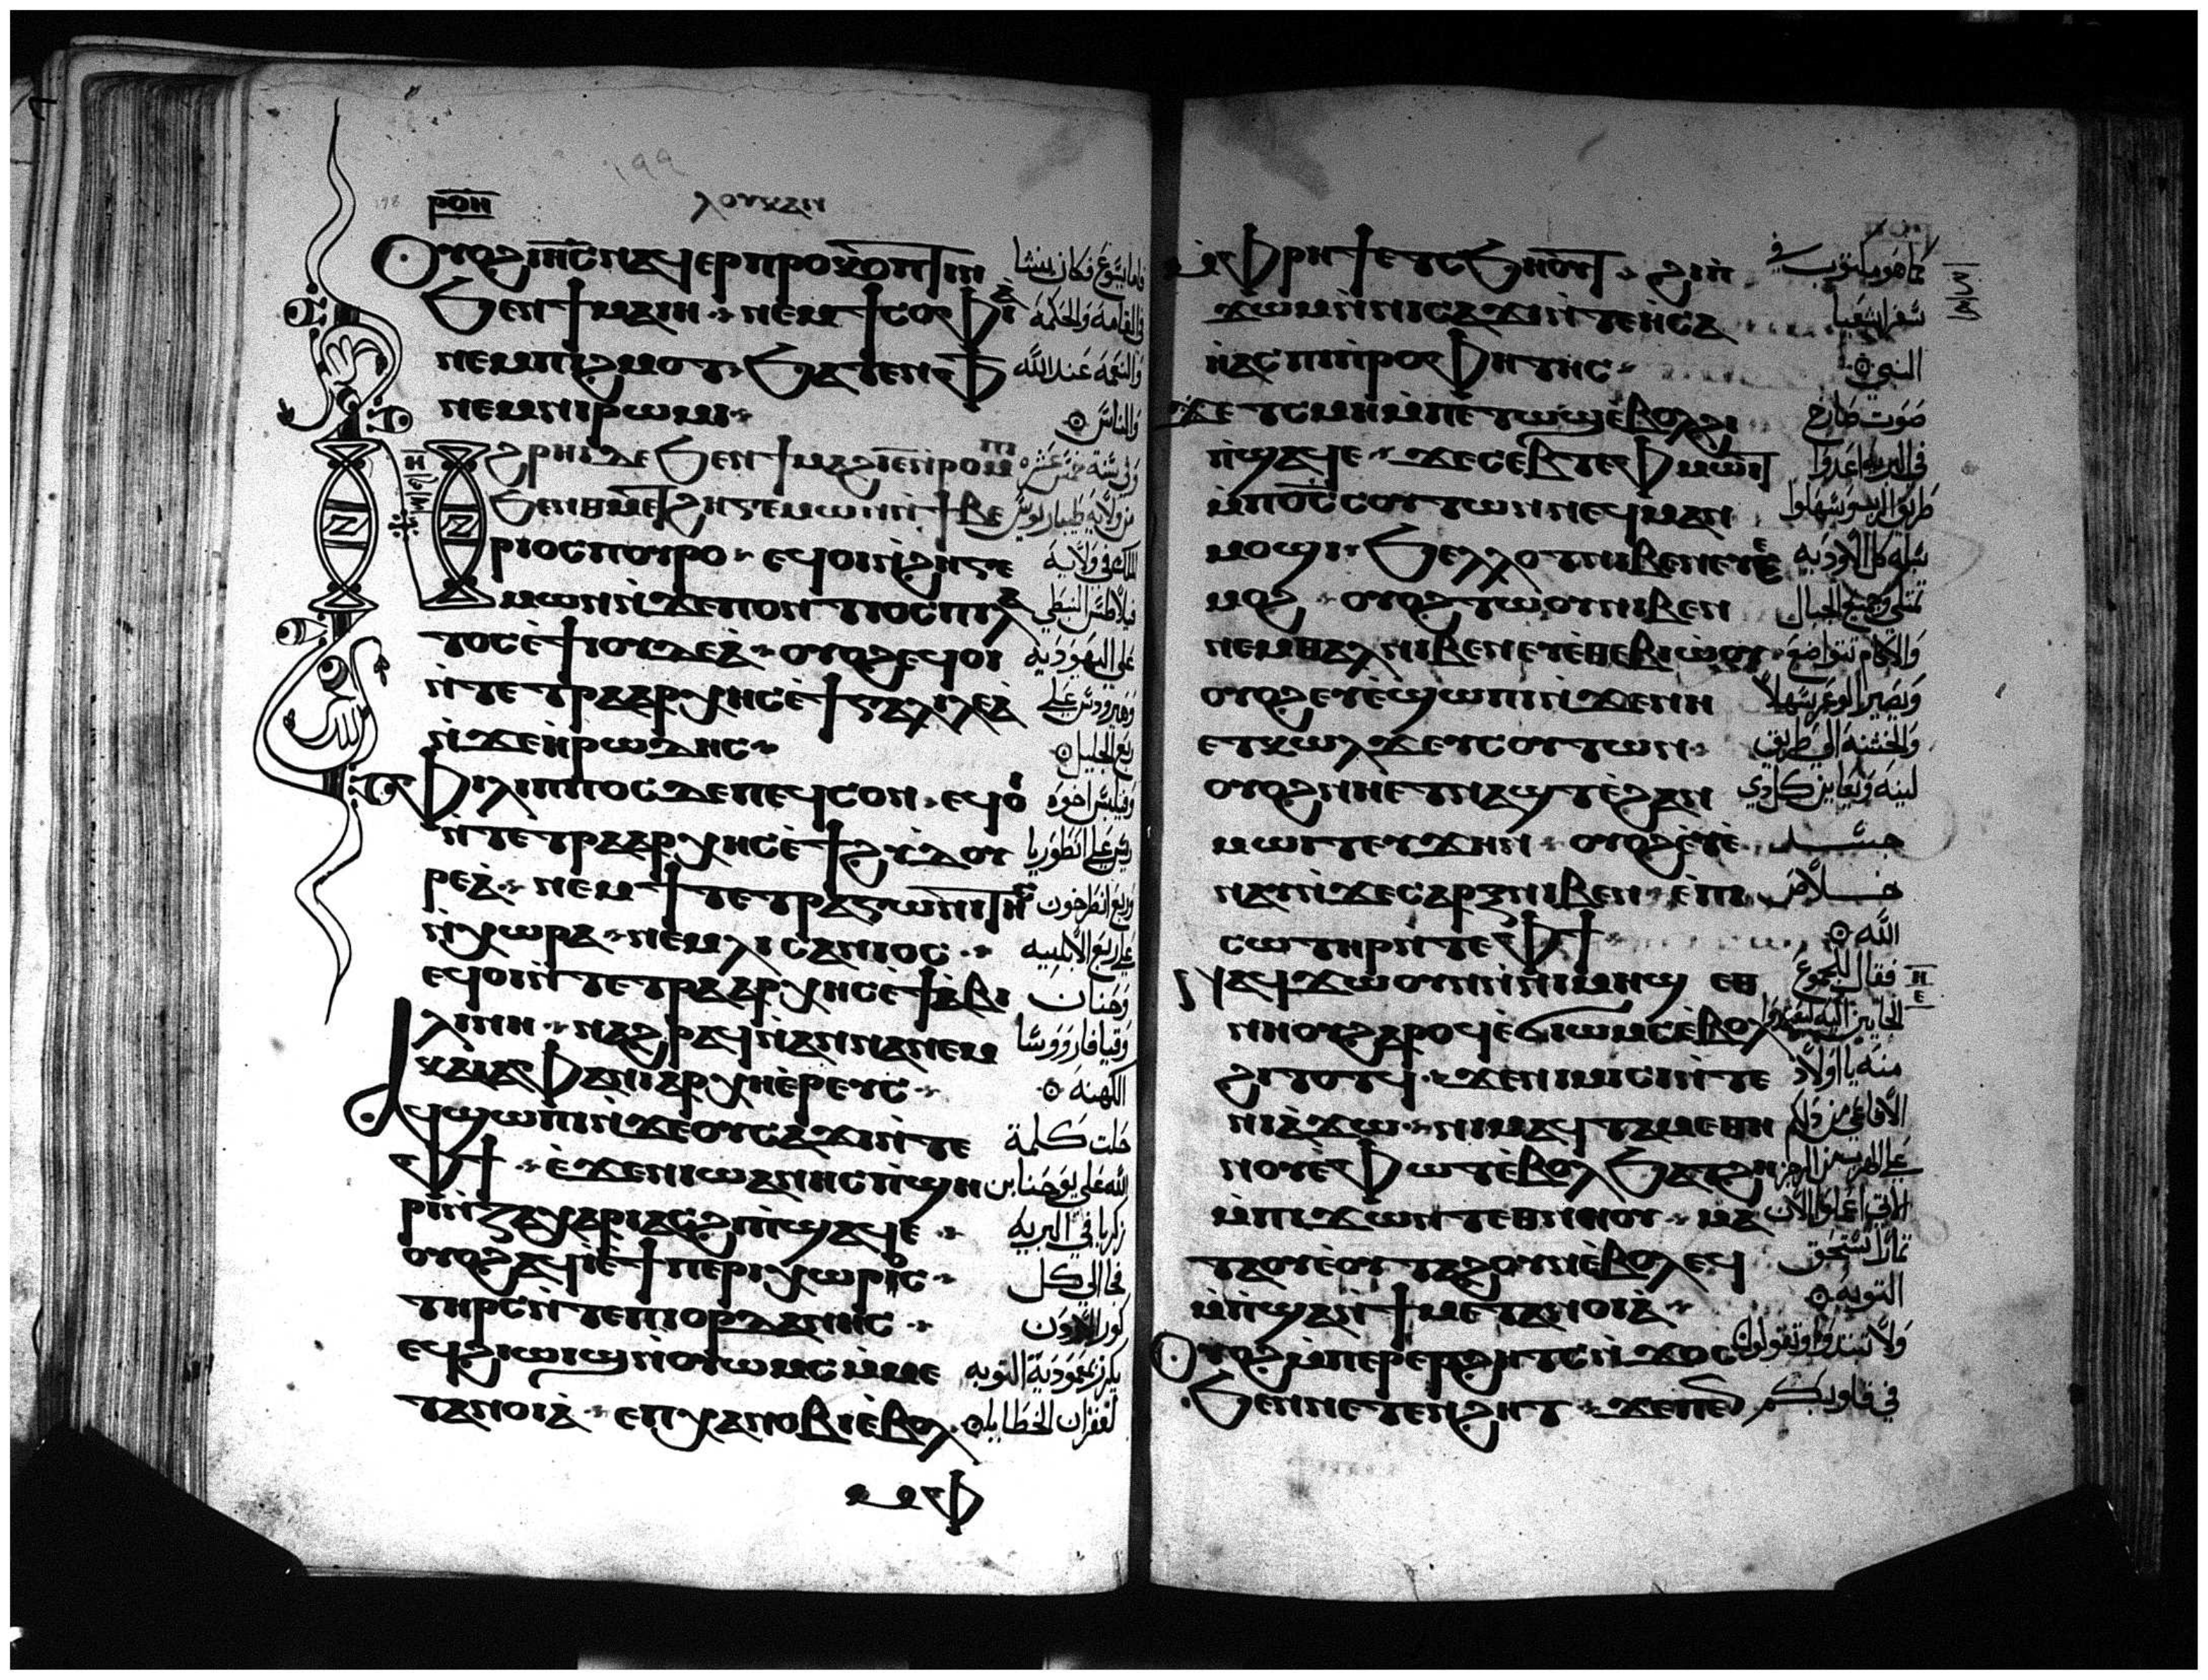 ⲣⲟⲏ
ⲗⲟⲩⲕⲁⲛ
ⲟⲩⲟϩ ⲓⲏ̅ⲥ̅ ⲛⲁϥⲉⲣⲡⲣⲟⲕⲟⲡⲧⲓⲛ
ϧⲉⲛ ϯⲙⲁⲓⲏ ⲛⲉⲙ ϯⲥⲟⲫⲓⲁ
ⲛⲉⲙ ⲡⲓϩⲙⲟⲧ ϧⲁⲧⲉⲛ ⲫϯ
ⲛⲉⲙ ⲛⲓⲣⲱⲙⲓ
ϩⲣⲏⲓ ⲇⲉ ϧⲉⲛ ϯⲙⲁϩⲓⲉ̅ ⲛ̀ⲣⲟⲙⲡⲓ
ϧⲉⲛ ⲑⲙⲉⲧϩⲏⲅⲉⲙⲱⲛ ⲛ̀ⲧⲓⲃⲉ
ⲣⲓⲟⲥ ⲡⲟⲩⲣⲟ ⲉϥⲟⲓ ⲛ̀ϩⲏⲅⲉ
ⲙⲱⲛ ⲛ̀ϫⲉ ⲡⲟⲛⲧⲓⲟⲥ ⲡⲓⲗⲁ
ⲧⲟⲥ ⲉ̀ϯⲓⲟⲩⲇⲉⲁ̀ ⲟⲩⲟϩ ⲉϥⲟⲓ
ⲛ̀ⲧⲉⲧⲣⲁⲁⲣⲭⲏⲥ ⲉ̀ϯⲅⲁⲗⲓⲗⲉⲁ̀
ⲛ̀ϫⲉ ⲏ̀ⲣⲱⲇⲏⲥ
ⲫⲓⲗⲓⲡⲡⲟⲥ ⲇⲉ ⲡⲉϥⲥⲟⲛ ⲉϥⲟⲓ
ⲛ̀ⲧⲉⲧⲣⲁⲁⲣⲭⲏⲥ ⲉ̀ϯϩⲩⲇⲟⲩ
ⲣⲉⲁ̀ ⲛⲉⲙ ϯⲧⲉⲧⲣⲁⲅⲱⲛⲓⲧⲏⲥ
ⲛ̀ⲭⲱⲣⲁ ⲛⲉⲙ ⲗⲓⲥⲁⲛⲓⲟⲥ
ⲉϥⲟⲓ ⲛ̀ⲧⲉⲧⲣⲁⲁⲣⲭⲏⲥ ⲉ̀ϯⲁ̀ⲃⲓ
ⲗⲓⲛⲏ ⲛⲁϩⲣⲁϥ ⲛ̀ⲁⲛⲛⲁ ⲛⲉⲙ
ⲕⲁⲓⲁⲫⲁ ⲛⲓⲁⲣⲭⲏⲉ̀ⲣⲉⲩⲥ
ⲁϥϣⲱⲡⲓ ⲛ̀ϫⲉ ⲟⲩⲥⲁϫⲓ ⲛ̀ⲧⲉ
ⲫϯ ⲉ̀ϫⲉⲛ ⲓⲱⲁⲛⲛⲏⲥ ⲡ̀ϣⲏ
ⲣⲓ ⲛ̀ⲍⲁⲭⲁⲣⲓⲁⲥ ϩⲓ ⲡ̀ϣⲁϥⲉ
ⲟⲩⲟϩ ⲁϥⲓ̀ ⲉ̀ϯⲡⲉⲣⲓⲭⲱⲣⲟⲥ
ⲧⲏⲣⲥ ⲛ̀ⲧⲉ ⲡⲓⲟⲣⲇⲁⲛⲏⲥ
ⲉϥϩⲓⲱⲓϣ ⲛ̀ⲟⲩⲱⲙⲥ ⲙ̀ⲙⲉ
ⲧⲁⲛⲟⲓⲁ̀ ⲉⲡⲭⲁⲛⲟⲃⲓ ⲉ̀ⲃⲟⲗ
ⲙ̀ⲫ
فاما يسوع فكان ينشا
في القامه والحكمه
والنعمه عند الله
والناس
وفي سنة خمس عشره
من ولايه طيباريوس
الملك في ولايه
بيلاطس النبطي
على اليهوديه
وهيرودس على
ربع الجليل
وفيلبس اخوه
وحنان
وقيافا روؤسا
الكهنه
حلت كلمة
الله على يوحنا بن
زكريا في البريه
فجا الى كل
كور الاردن
يكرز بمعمودية التوبه
لغفران الخطايا
ⲙ̀ⲫⲣⲏϯ ⲉⲧⲥϧⲏⲟⲩⲧ ϩⲓ ⲡ̀
ϫⲱⲙ ⲛ̀ⲛⲓⲥⲁϫⲓ ⲛ̀ⲧⲉ ⲏ̀ⲥⲁ
ⲏ̀ⲁⲥ ⲡⲓⲡⲣⲟⲫⲏⲧⲏⲥ
ϫⲉ ⲧ̀ⲥⲙⲏ ⲙ̀ⲡⲉⲧⲱϣ ⲉ̀ⲃⲟⲗ ϩⲓ
ⲡ̀ϣⲁϥⲉ ϫⲉ ⲥⲉⲃⲧⲉ ⲫⲙⲱⲓⲧ
ⲙ̀ⲡⲟ̅ⲥ̅ ⲥⲟⲩⲧⲱⲛ ⲛⲉϥⲙⲁⲛ
ⲙⲟϣⲓ ϧⲉⲗⲗⲟⲧ ⲛⲓⲃⲉⲛ ⲉⲩⲉ̀
ⲙⲟϩ ⲟⲩⲟϩ ⲧⲱⲟⲩ ⲛⲓⲃⲉⲛ
ⲛⲉⲙ ⲑⲁⲗ ⲛⲓⲃⲉⲛ ⲉⲩⲉ̀ⲑⲉⲃⲓⲱ̀ⲟⲩ
ⲟⲩⲟϩ ⲉⲩⲉ̀ϣⲱⲡⲓ ⲛ̀ϫⲉ ⲛⲏ
ⲉⲧⲕⲱⲗϫ ⲉⲩⲥⲟⲩⲧⲱⲛ
ⲟⲩⲟϩ ⲛⲏ ⲉⲧⲛⲁϣⲧ ⲉ̀ϩⲁⲛ
ⲙⲱⲓⲧ ⲉⲩϫⲏⲛ ⲟⲩⲟϩ ⲉ̀ⲩⲉ̀
ⲛⲁⲩ ⲛ̀ϫⲉ ⲥⲁⲣⲝ ⲛⲓⲃⲉⲛ ⲉ̀ⲡⲓ
ⲥⲱⲧⲏⲣ ⲛ̀ⲧⲉ ⲫϯ
ⲛⲁϥϫⲱ ⲟⲩⲛ ⲛ̀ⲛⲓⲙⲏϣ ⲉⲑ
ⲛⲏⲟⲩ ϩⲁⲣⲟϥ ⲉ̀ϭⲓⲱⲙⲥ ⲉ̀ⲃⲟⲗ
ϩⲓⲧⲟⲧϥ ϫⲉ ⲛⲓⲙⲓⲥⲓ ⲛ̀ⲧⲉ
ⲛⲓⲁ̀ϫⲱ ⲛⲓⲙ ⲁϥⲧⲁⲙⲉ ⲑⲏ
ⲛⲟⲩ ⲉ̀ⲫⲱⲧ ⲉ̀ⲃⲟⲗ ϧⲁⲧϩⲏ
ⲙ̀ⲡⲓϫⲱⲛⲧ ⲉⲑⲛⲏⲟⲩ ⲙⲁ
ⲧⲁⲟⲩⲉ̀ ⲟⲩⲧⲁϩ ⲟⲩⲛ ⲉ̀ⲃⲟⲗ ⲉϥ
ⲙ̀ⲡ̀ϣⲁ ⲛ̀ϯⲙⲉⲧⲁⲛⲟⲓⲁ̀
ⲟⲩⲟϩ ⲙ̀ⲡⲉⲣⲉⲣϩⲏⲧⲥ ⲛ̀ϫⲟⲥ
ϧⲉⲛ ⲛⲉⲧⲉⲛϩⲏⲧ ϫⲉ
كما هو مكتوب في
سفر اشعيا
النبي
صوت صارخ
في البريه اعدوا
طريق الرب وسهلوا
تمتلي وجميع الجبال
والاكام تتواضع
ويصير الوعر سهلا
والخشنه الى طريق
لينه ويعاين كل ذي
جسد
خلاص
الله
فقال للجموع
منه يا اولاد
الافاعي من دلكم
ثمارا تستحق
التوبه
ولا تبتدوا وتقولون
في قلوبكم